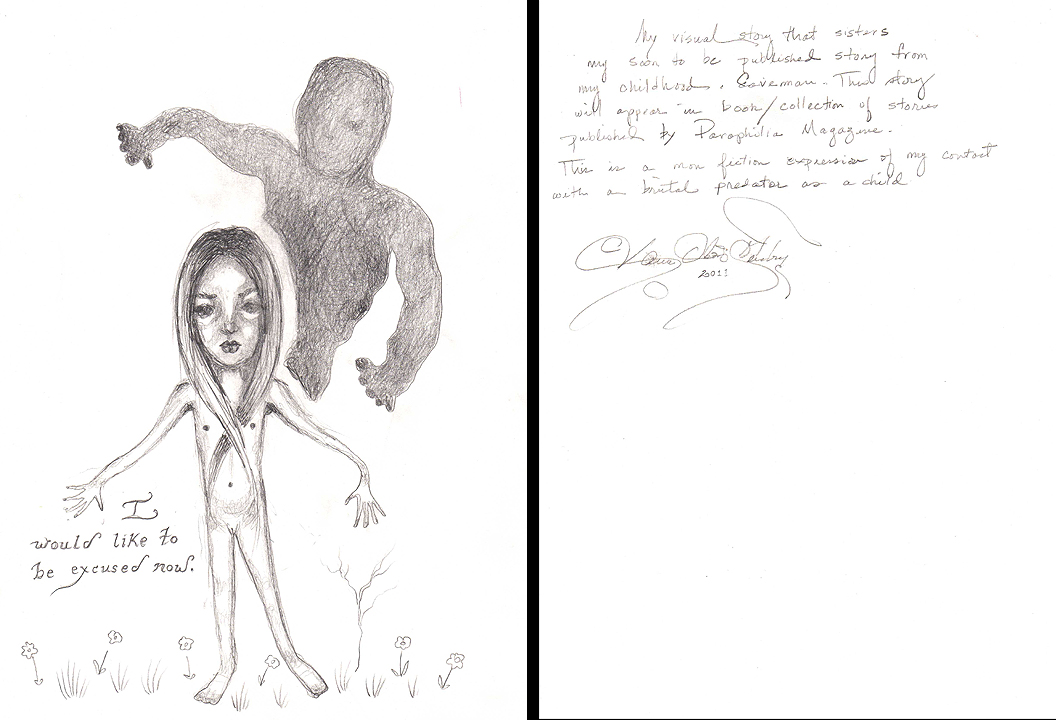 I
would like to
be excused now.
My visual story that sisters
my soon to be published story from
my childhood. Caveman. This story
will appear in book/collection of stories
published by Paraphilia Magazine.
This is a non fiction expression of my contact
with a brutal predator as a child
2011